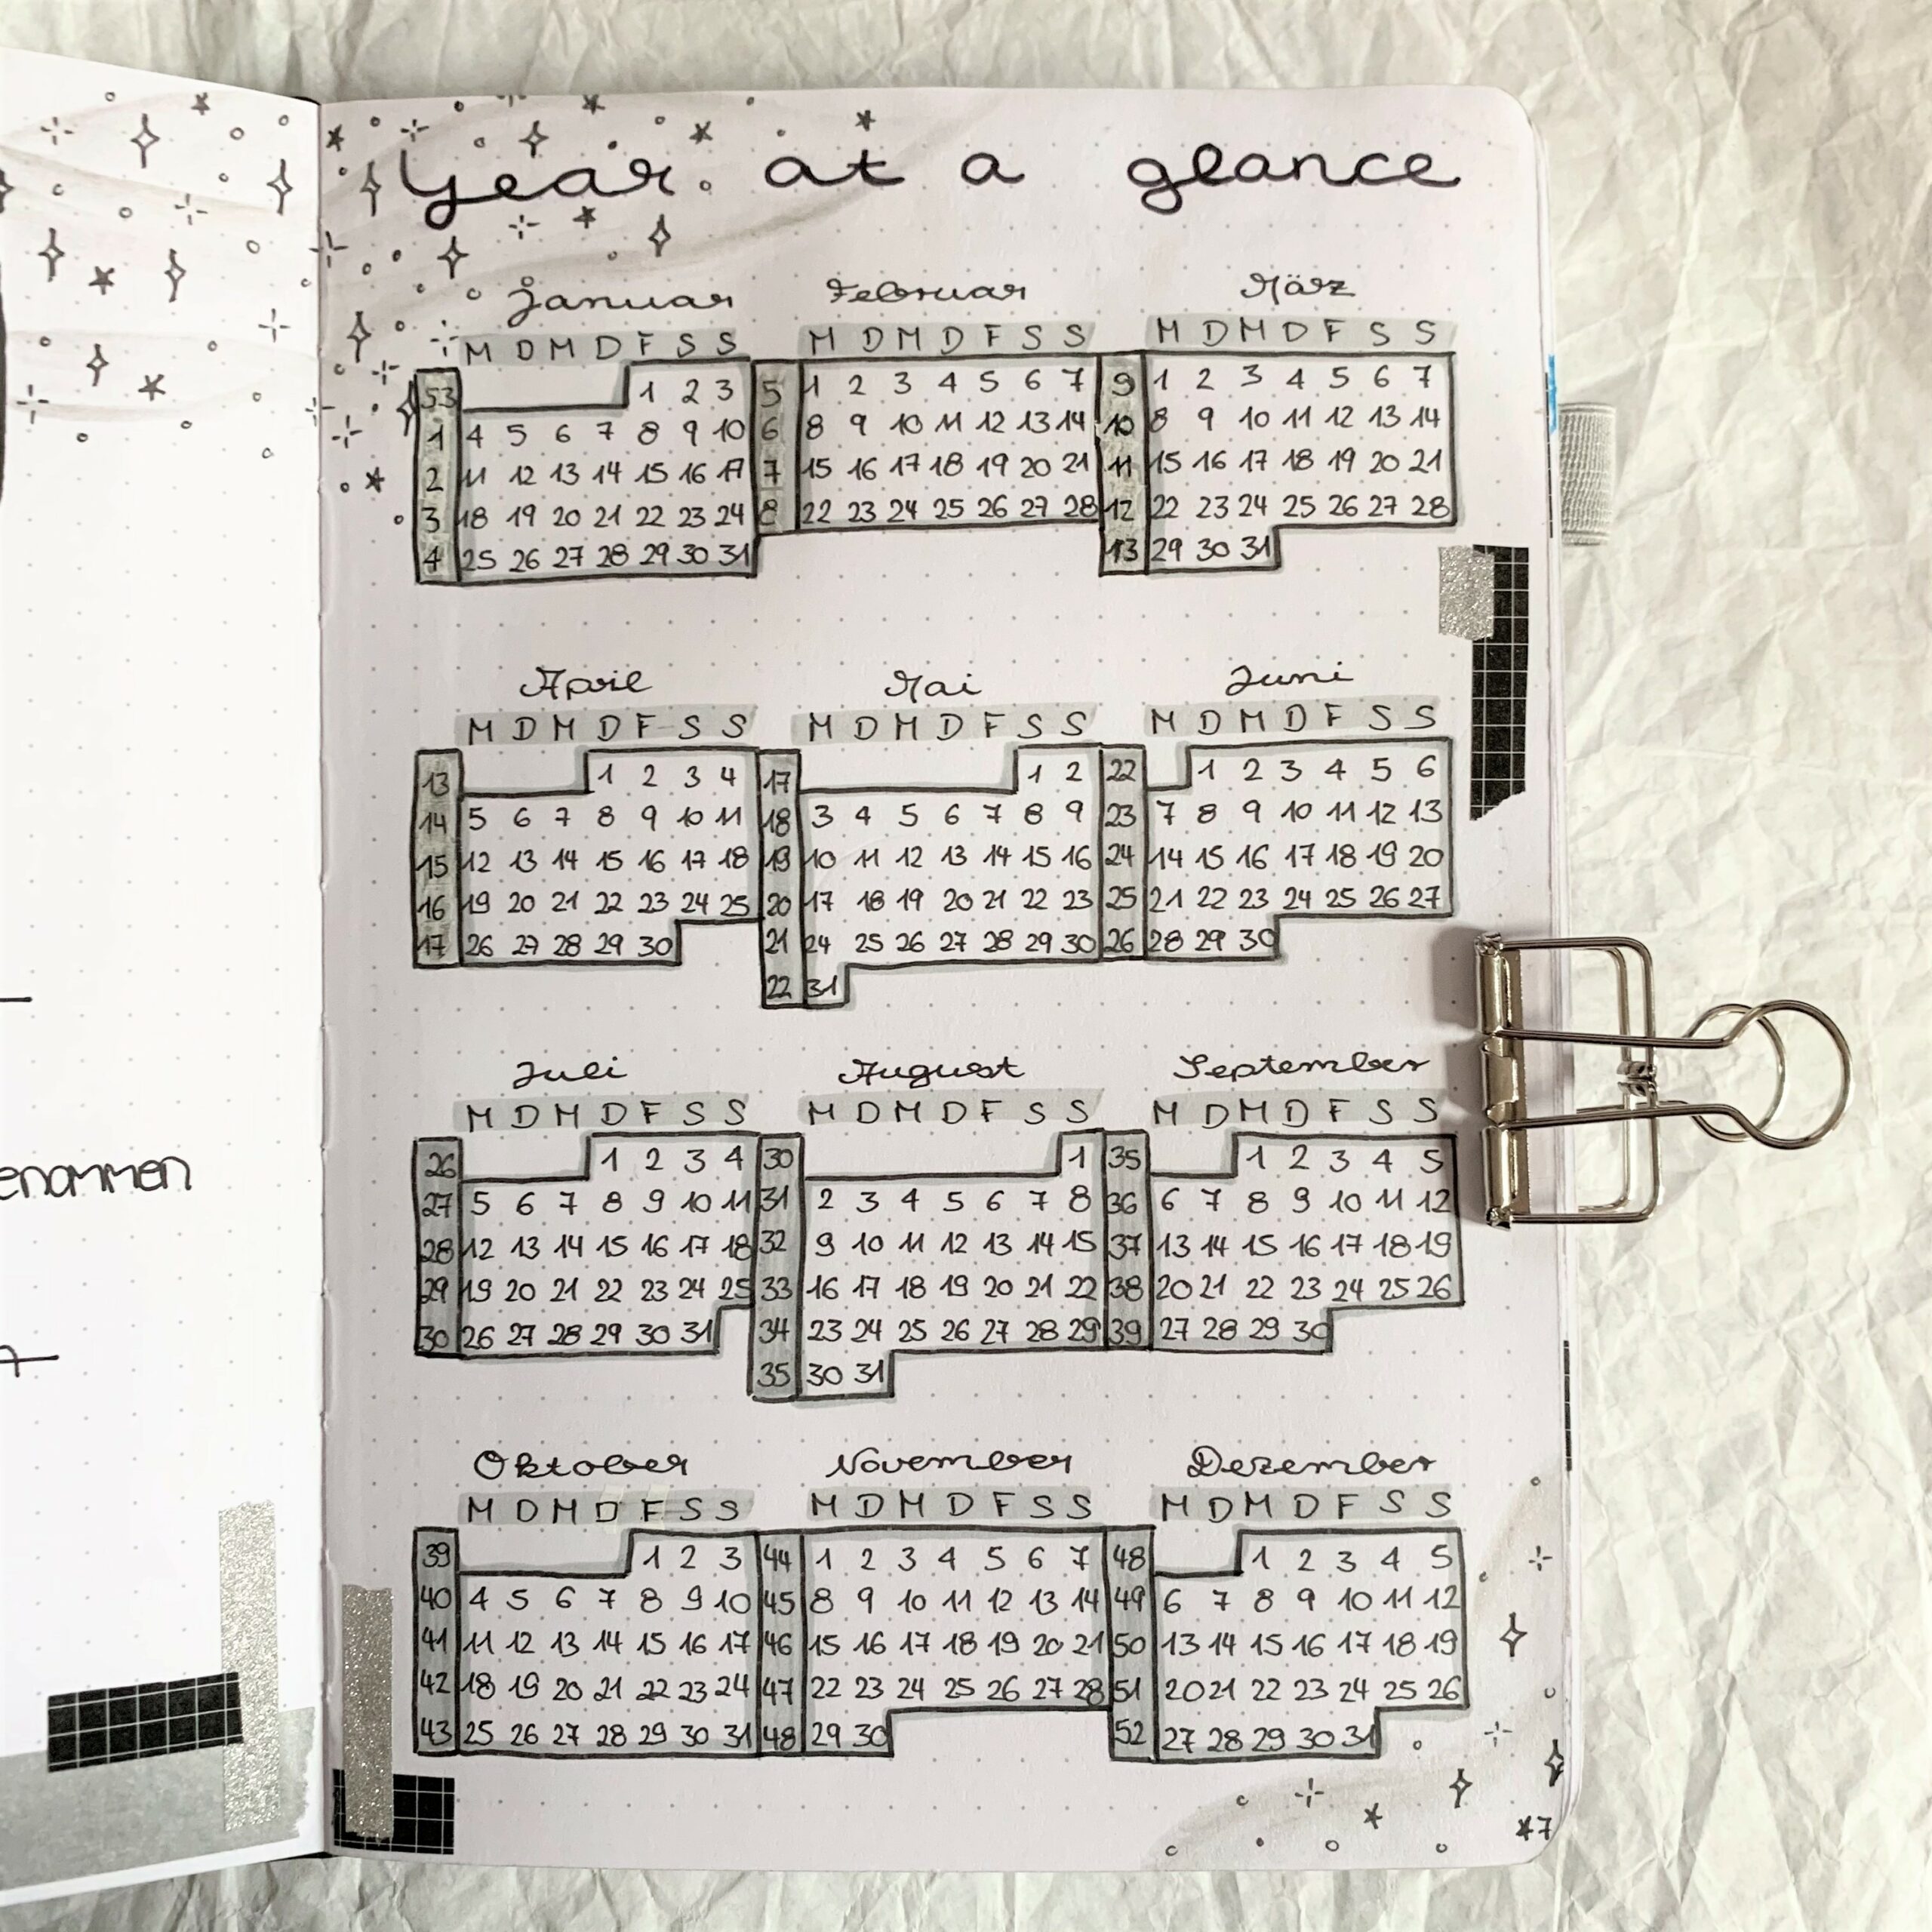 Year at a glance
Januar Februar März
M D M D F S S M D M D F S S M D M D F S S
53 1 2 3 5 1 2 3 4 5 6 7 9 1 2 3 4 5 6 7
1 4 5 6 7 8 9 10 6 8 9 10 11 12 13 14 10 8 9 10 11 12 13 14
2 11 12 13 14 15 16 17 7 15 16 17 18 19 20 21 11 15 16 17 18 19 20 21
3 18 19 20 21 22 23 24 8 22 23 24 25 26 27 28 12 22 23 24 25 26 27 28
4 25 26 27 28 29 30 31 13 29 30 31
April Mai Juni
M D M D F S S M D M D F S S M D M D F S S
13 1 2 3 4 17 1 2 22 1 2 3 4 5 6
14 5 6 7 8 9 10 11 18 3 4 5 6 7 8 9 23 7 8 9 10 11 12 13
15 12 13 14 15 16 17 18 19 10 11 12 13 14 15 16 24 14 15 16 17 18 19 20
16 19 20 21 22 23 24 25 20 17 18 19 20 21 22 23 25 21 22 23 24 25 26 27
17 26 27 28 29 30 21 24 25 26 27 28 29 30 26 28 29 30
22 31
Juli August September
M D M D F S S M D M D F S S M D M D F S S
26 1 2 3 4 30 1 35 1 2 3 4 5
27 5 6 7 8 9 10 11 31 2 3 4 5 6 7 8 36 6 7 8 9 10 11 12
28 12 13 14 15 16 17 18 32 9 10 11 12 13 14 15 37 13 14 15 16 17 18 19
29 19 20 21 22 23 24 25 33 16 17 18 19 20 21 22 38 20 21 22 23 24 25 26
30 26 27 28 29 30 31 34 23 24 25 26 27 28 29 39 27 28 29 30
35 30 31
Oktober November Dezember
M D M D F S S M D M D F S S M D M D F S S
39 1 2 3 44 1 2 3 4 5 6 7 48 1 2 3 4 5
40 4 5 6 7 8 9 10 45 8 9 10 11 12 13 14 49 6 7 8 9 10 11 12
41 11 12 13 14 15 16 17 46 15 16 17 18 19 20 21 50 13 14 15 16 17 18 19
42 18 19 20 21 22 23 24 47 22 23 24 25 26 27 28 51 20 21 22 23 24 25 26
43 25 26 27 28 29 30 31 48 29 30 52 27 28 29 30 31
7
enommen